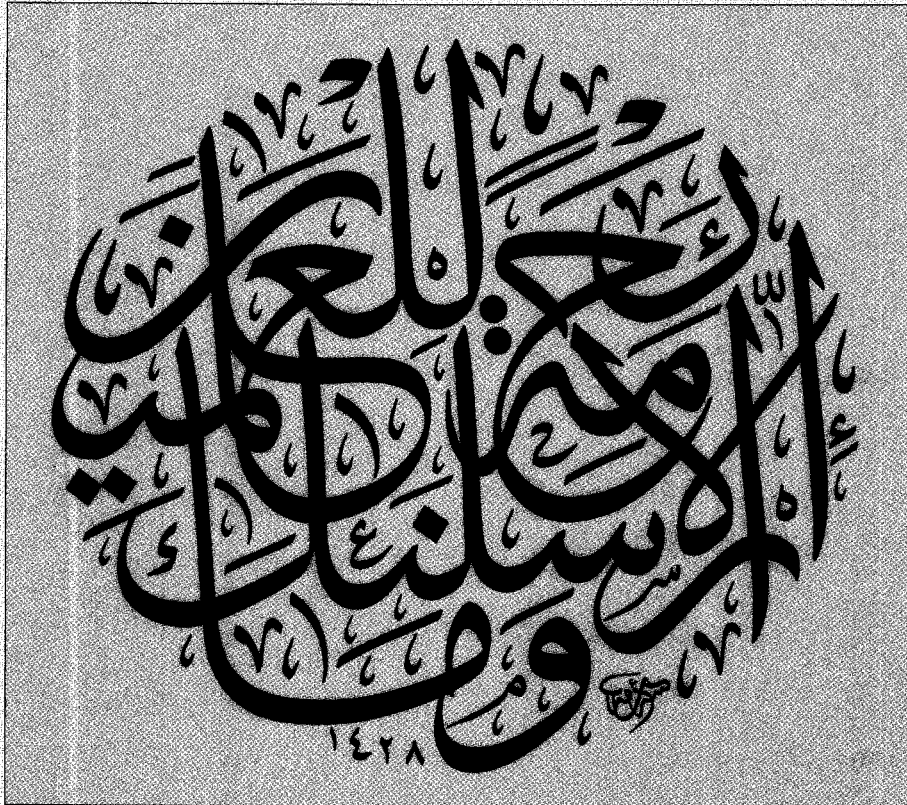 وَمَا أَرْسَلْنَاكَ إِلَّا رَحْمَةً لِلْعَالَمِينَ
١٤٢٨